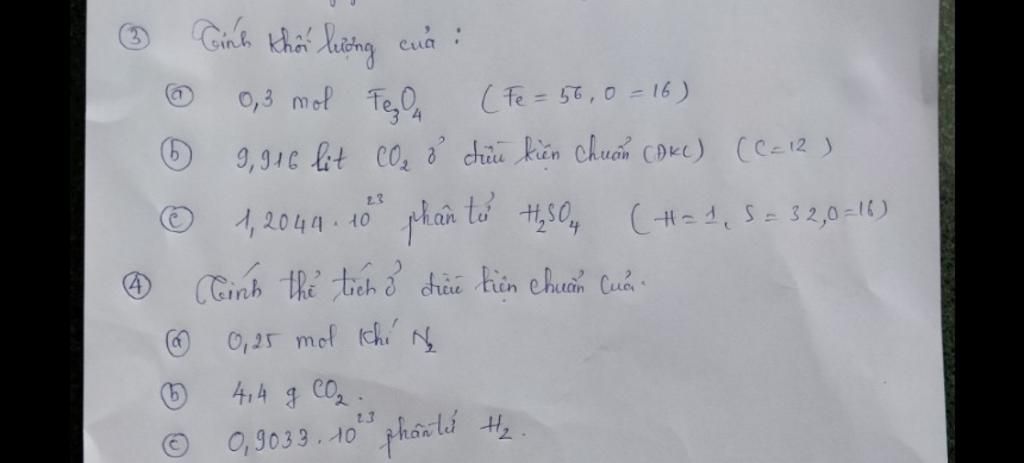 ③ Tính khối lượng của :
ⓐ 0,3 mol Fe₃O₄ (Fe = 56, O = 16)
ⓑ 9,916 lít CO₂ ở điều kiện chuẩn (ĐKC) (C = 12)
ⓒ 1,2044.10²³ phân tử H₂SO₄ (H = 1, S = 32, O = 16)
④ Tính thể tích ở điều kiện chuẩn của.
ⓐ 0,25 mol khí N₂
ⓑ 4,4 g CO₂.
ⓒ 0,9033.10²³ phân tử H₂.